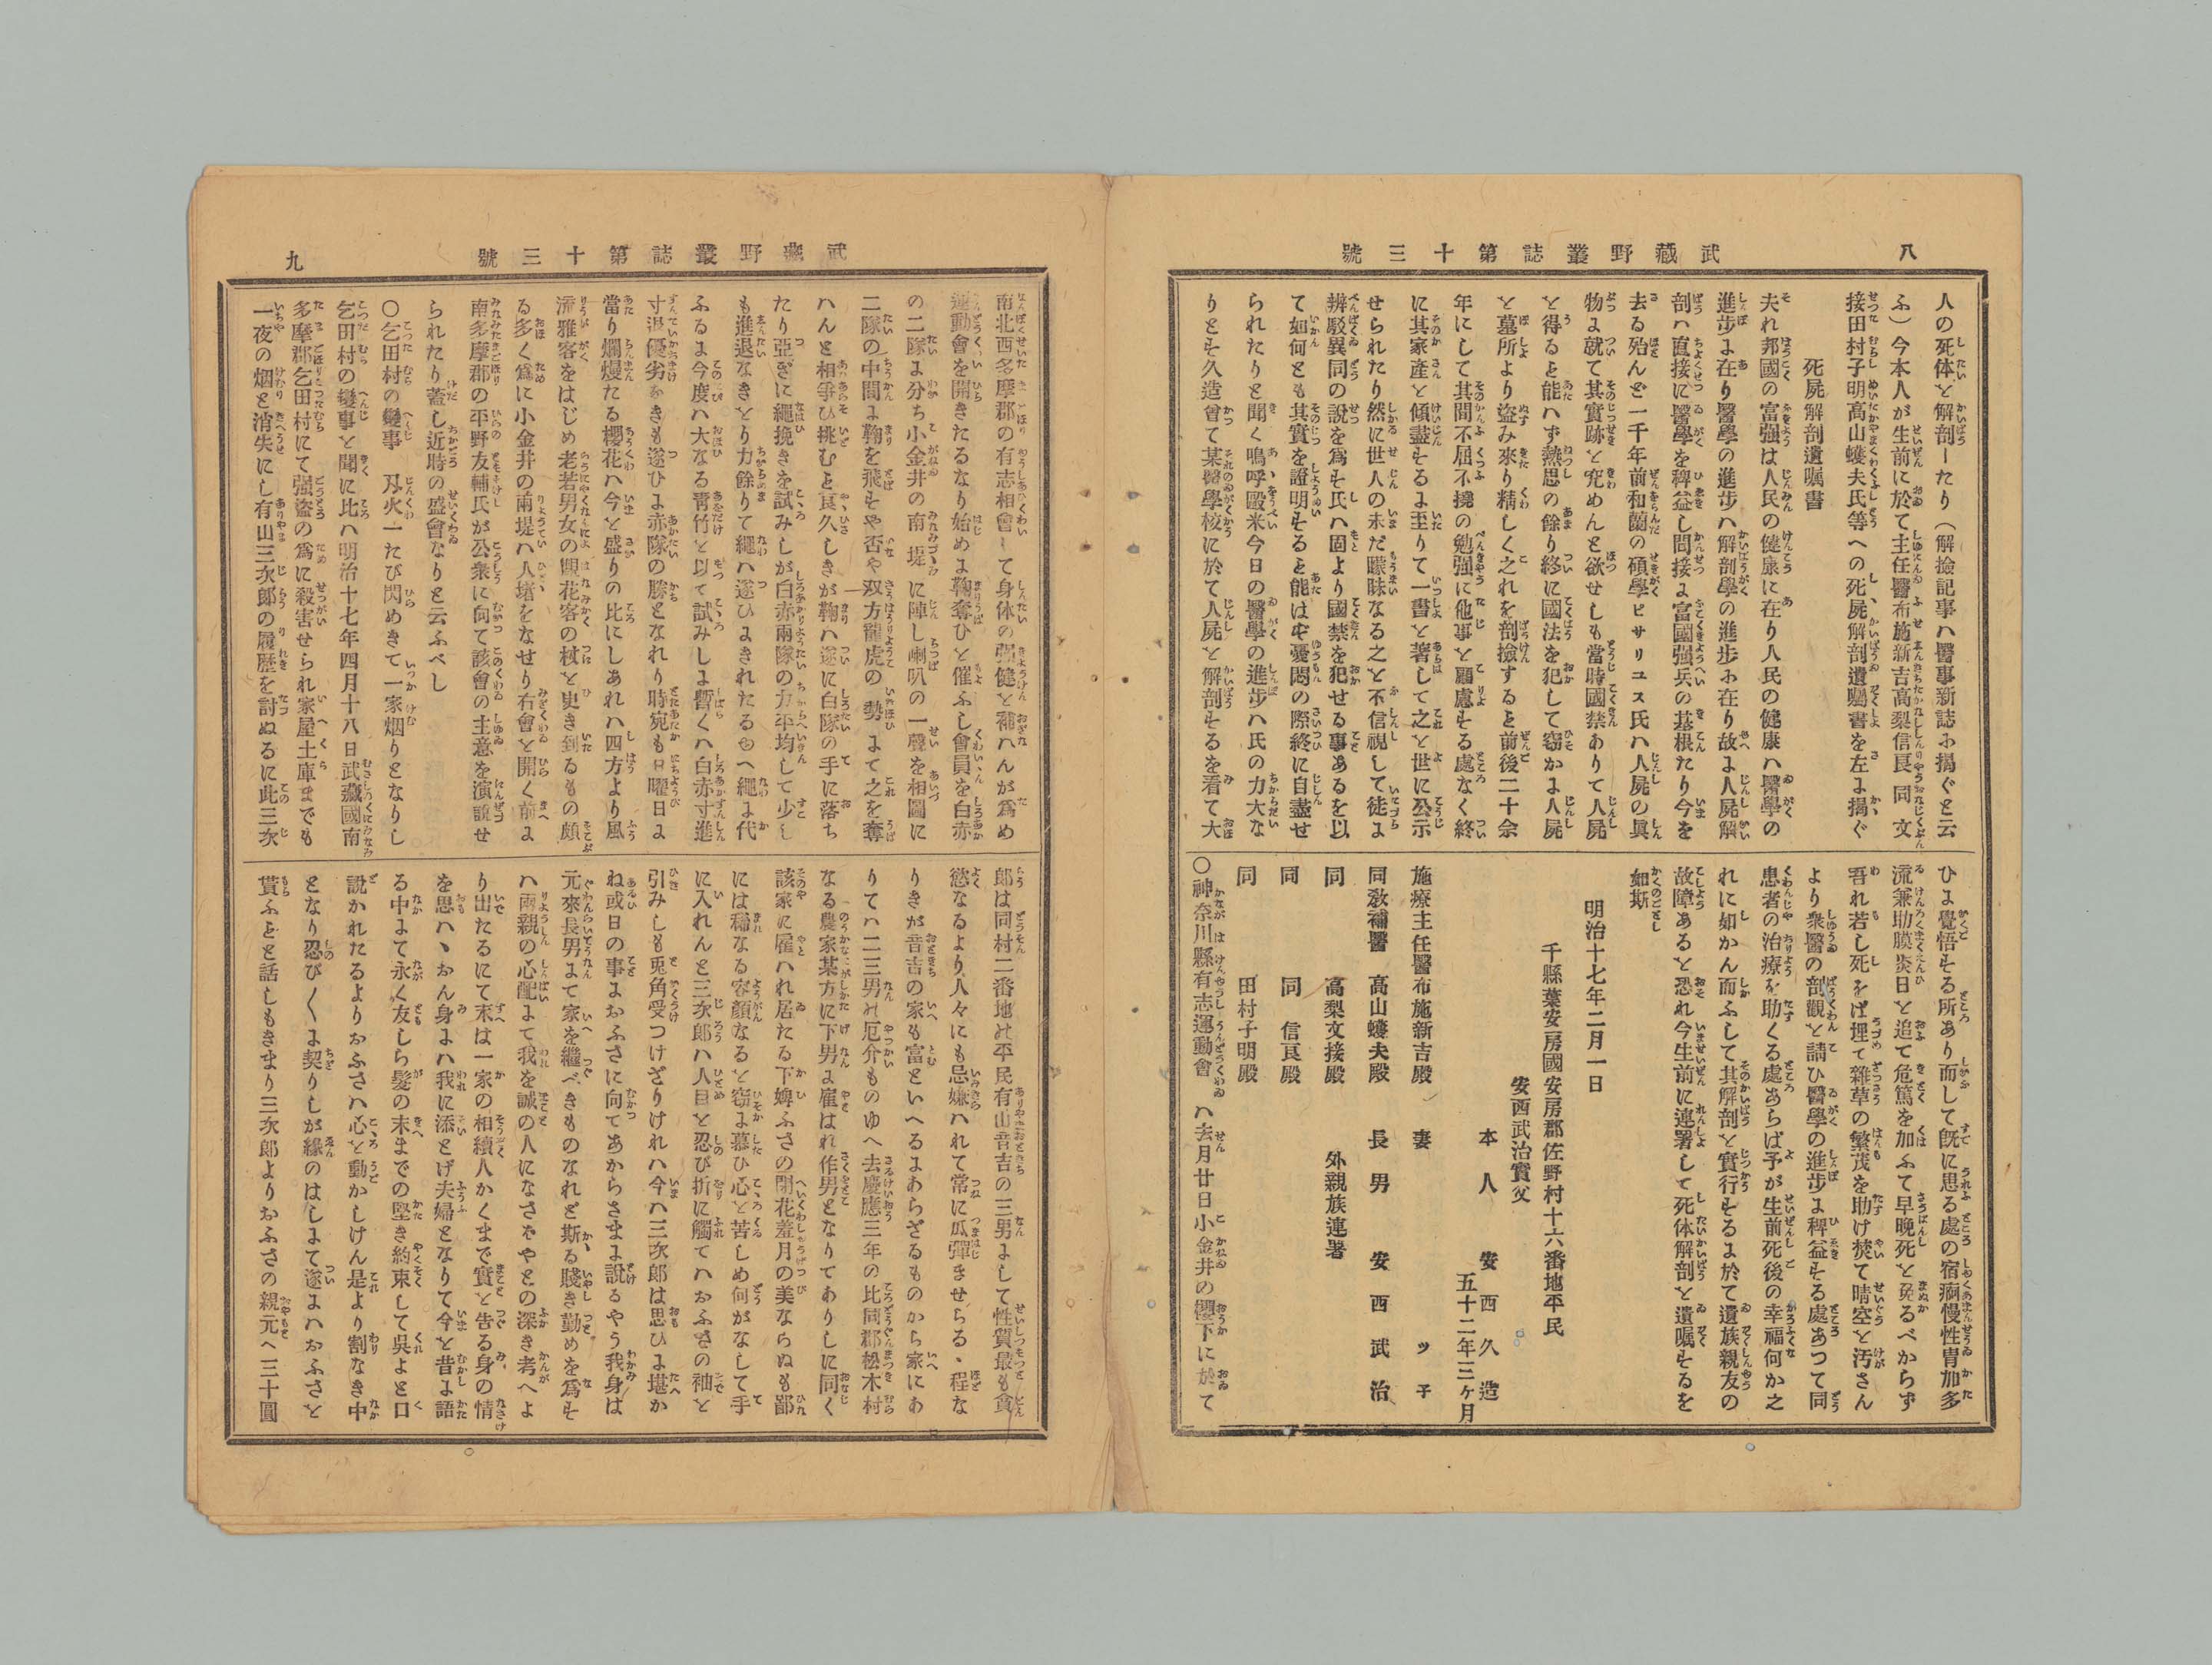 八
武藏野叢誌第十三號
人の死体を解剖したり（解撿記事ハ醫事新誌に揭ぐと云
ふ）今本人が生前に於て主任醫布施新吉高梨信良同文
接田村子明高山蟻夫氏等への死屍解剖遺囑書を左に揭ぐ
死屍解剖遺囑書
夫れ邦國の富强は人民の健康に在り人民の健康ハ醫學の
進步に在り醫學の進步ハ解剖學の進步に在り故に人屍解
剖ハ直接に醫學を稗益し間接に富國强兵の基根たり今を
去る殆んど一千年前和蘭の碩學ヒサリユス氏ハ人屍の眞
物に就て其實跡を究めんと欲せしも當時國禁ありて人屍
を得ると能ハず熱思の餘り終に國法を犯して窃かに人屍
を墓所より盜み來り精しく之れを剖撿すると前後二十余
年にして其間不屈不撓の勉强に他事を顧慮する處なく終
に其家產を傾盡するに至りて一書を著して之を世に公示
せられたり然に世人の未だ曚昧なる之を不信視して徒に
辨駁異同の說を爲す氏ハ固より國禁を犯せる事あるを以
て如何とも其實を證明すると能はず憂悶の際終に自盡せ
られたりと聞く嗚呼毆米今日の醫學の進步ハ氏の力大な
りとす久造曾て某醫學校に於て人屍を解剖するを看て大
ひに覺悟する所あり而して旣に思る處の宿痾慢性胃加多
流兼肋膜炎日を追て危篤を加ふて早晩死を免るべからず
吾れ若し死をば埋て雜草の繁茂を助け焚て晴空を汚さん
より衆醫の剖觀を請ひ醫學の進步に稗益する處あつて同
患者の治療を助くる處あらば予が生前死後の幸福何か之
れに如かん而ふして其解剖を實行するに於て遺族親友の
故障あるを恐れ今生前に連署して死体解剖を遺囑するを
如斯
明治十七年二月一日
千縣葉安房國安房郡佐野村十六番地平民
安西武治實父
本人　安西久造
五十二年三ケ月
施療主任醫布施新吉殿　妻　ツ子
同敎補醫　高山蟻夫殿　長男　安西武治
同　高梨文接殿　外親族連署
同　同　信良殿
同　田村子明殿
〇神奈川縣有志運動會　ハ去月廿日小金井の櫻下に於て
武藏野叢誌第十三號
九
南北西多摩郡の有志相會して身体の强健を補ハんが爲め
運動會を開きたるなり始めに鞠奪ひを催ふし會員を白赤
の二隊に分ち小金井の南堤に陣し喇叭の一聲を相圖に
二隊の中間に鞠を飛すや否や双方龍虎の勢にて之を奪
ハんと相爭ひ挑むと良久しきが鞠ハ遂に白隊の手に落ち
たり亞ぎに繩挽きを試みしが白赤兩隊の力平均して少し
も進退なきより力餘りて繩ハ遂ひにきれたるゆへ繩に代
ふるに今度ハ大なる靑竹を以て試みしに暫くハ白赤寸進
寸退優劣なきも遂ひに赤隊の勝となれり時宛も日曜日に
當り爛熳たる櫻花ハ今を盛りの比にしあれハ四方より風
流雅客をはじめ老若男女の觀花客の杖を曳き到るもの頗
る多く爲に小金井の兩堤ハ人堵をなせり右會を開く前に
南多摩郡の平野友輔氏が公衆に向て該會の主意を演說せ
られたり蓋し近時の盛會なりと云ふべし
〇乞田村の變事　刄火一たび閃めきて一家烟りとなりし
乞田村の變事を聞に比ハ明治十七年四月十八日武藏國南
多摩郡乞田村にて强盜の爲に殺害せられ家屋土庫までも
一夜の烟と消失にし有山三次郎の履歷を討ぬるに此三次
郎は同村二番地の平民有山音吉の三男にして性質最も貪
慾なるより人々にも忌嫌ハれて常に瓜彈ませらるゝ程な
りきが音吉の家も富といへるにあらざるものから家にあ
りてハ二三男の厄介ものゆへ去慶應三年の比同郡松木村
なる農家某方に下男に雇はれ作男となりてありしに同く
該家に雇ハれ居たる下婢ふさの閉花羞月の美ならぬも鄙
には稀なる容顏なるを窃に慕ひ心を苦しめ何がなして手
に入れんと三次郎ハ人目を忍び折に觸てハおふさの袖を
引みしも兎角受つけざりけれハ今ハ三次郎は思ひに堪か
ね或日の事におふさに向てあからさまに說るやう我身は
元來長男にて家を繼べきものなれど斯る賤き勤めを爲す
ハ兩親の心配にて我を誠の人になさばやとの深き考へよ
り出たるにて末は一家の相續人かくまで實を告る身の情
を思ハゝおん身にハ我に添とげ夫婦となりて今を昔に語
る中にて永く友しら髮の末までの堅き約束して吳よと口
說かれたるよりおふさハ心を動かしけん是より割なき中
となり忍び〳〵に契りしが緣のはしにて遂にハおふさを
貰ふとと話しもきまり三次郎よりおふさの親元へ三十圓